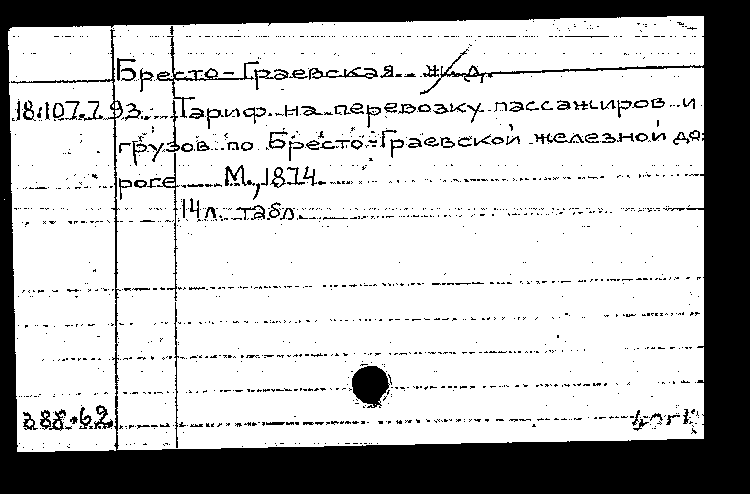 Бресто-Граевская ж.д.
18.107.7.93. Тариф на перевозку пассажиров и
грузов по Бресто-Граевской железной до-
роге М., 1874.
14л. табл.
388.62